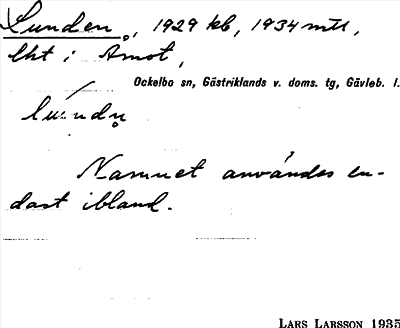 Lunden, 1929 kb, 1934 mtl
lht i Åmot,
Ockelbo sn, Gästriklands v. doms. tg, Gävleb. l.
Namnet användes en-
dast ibland.
LARS LARSSON 1935